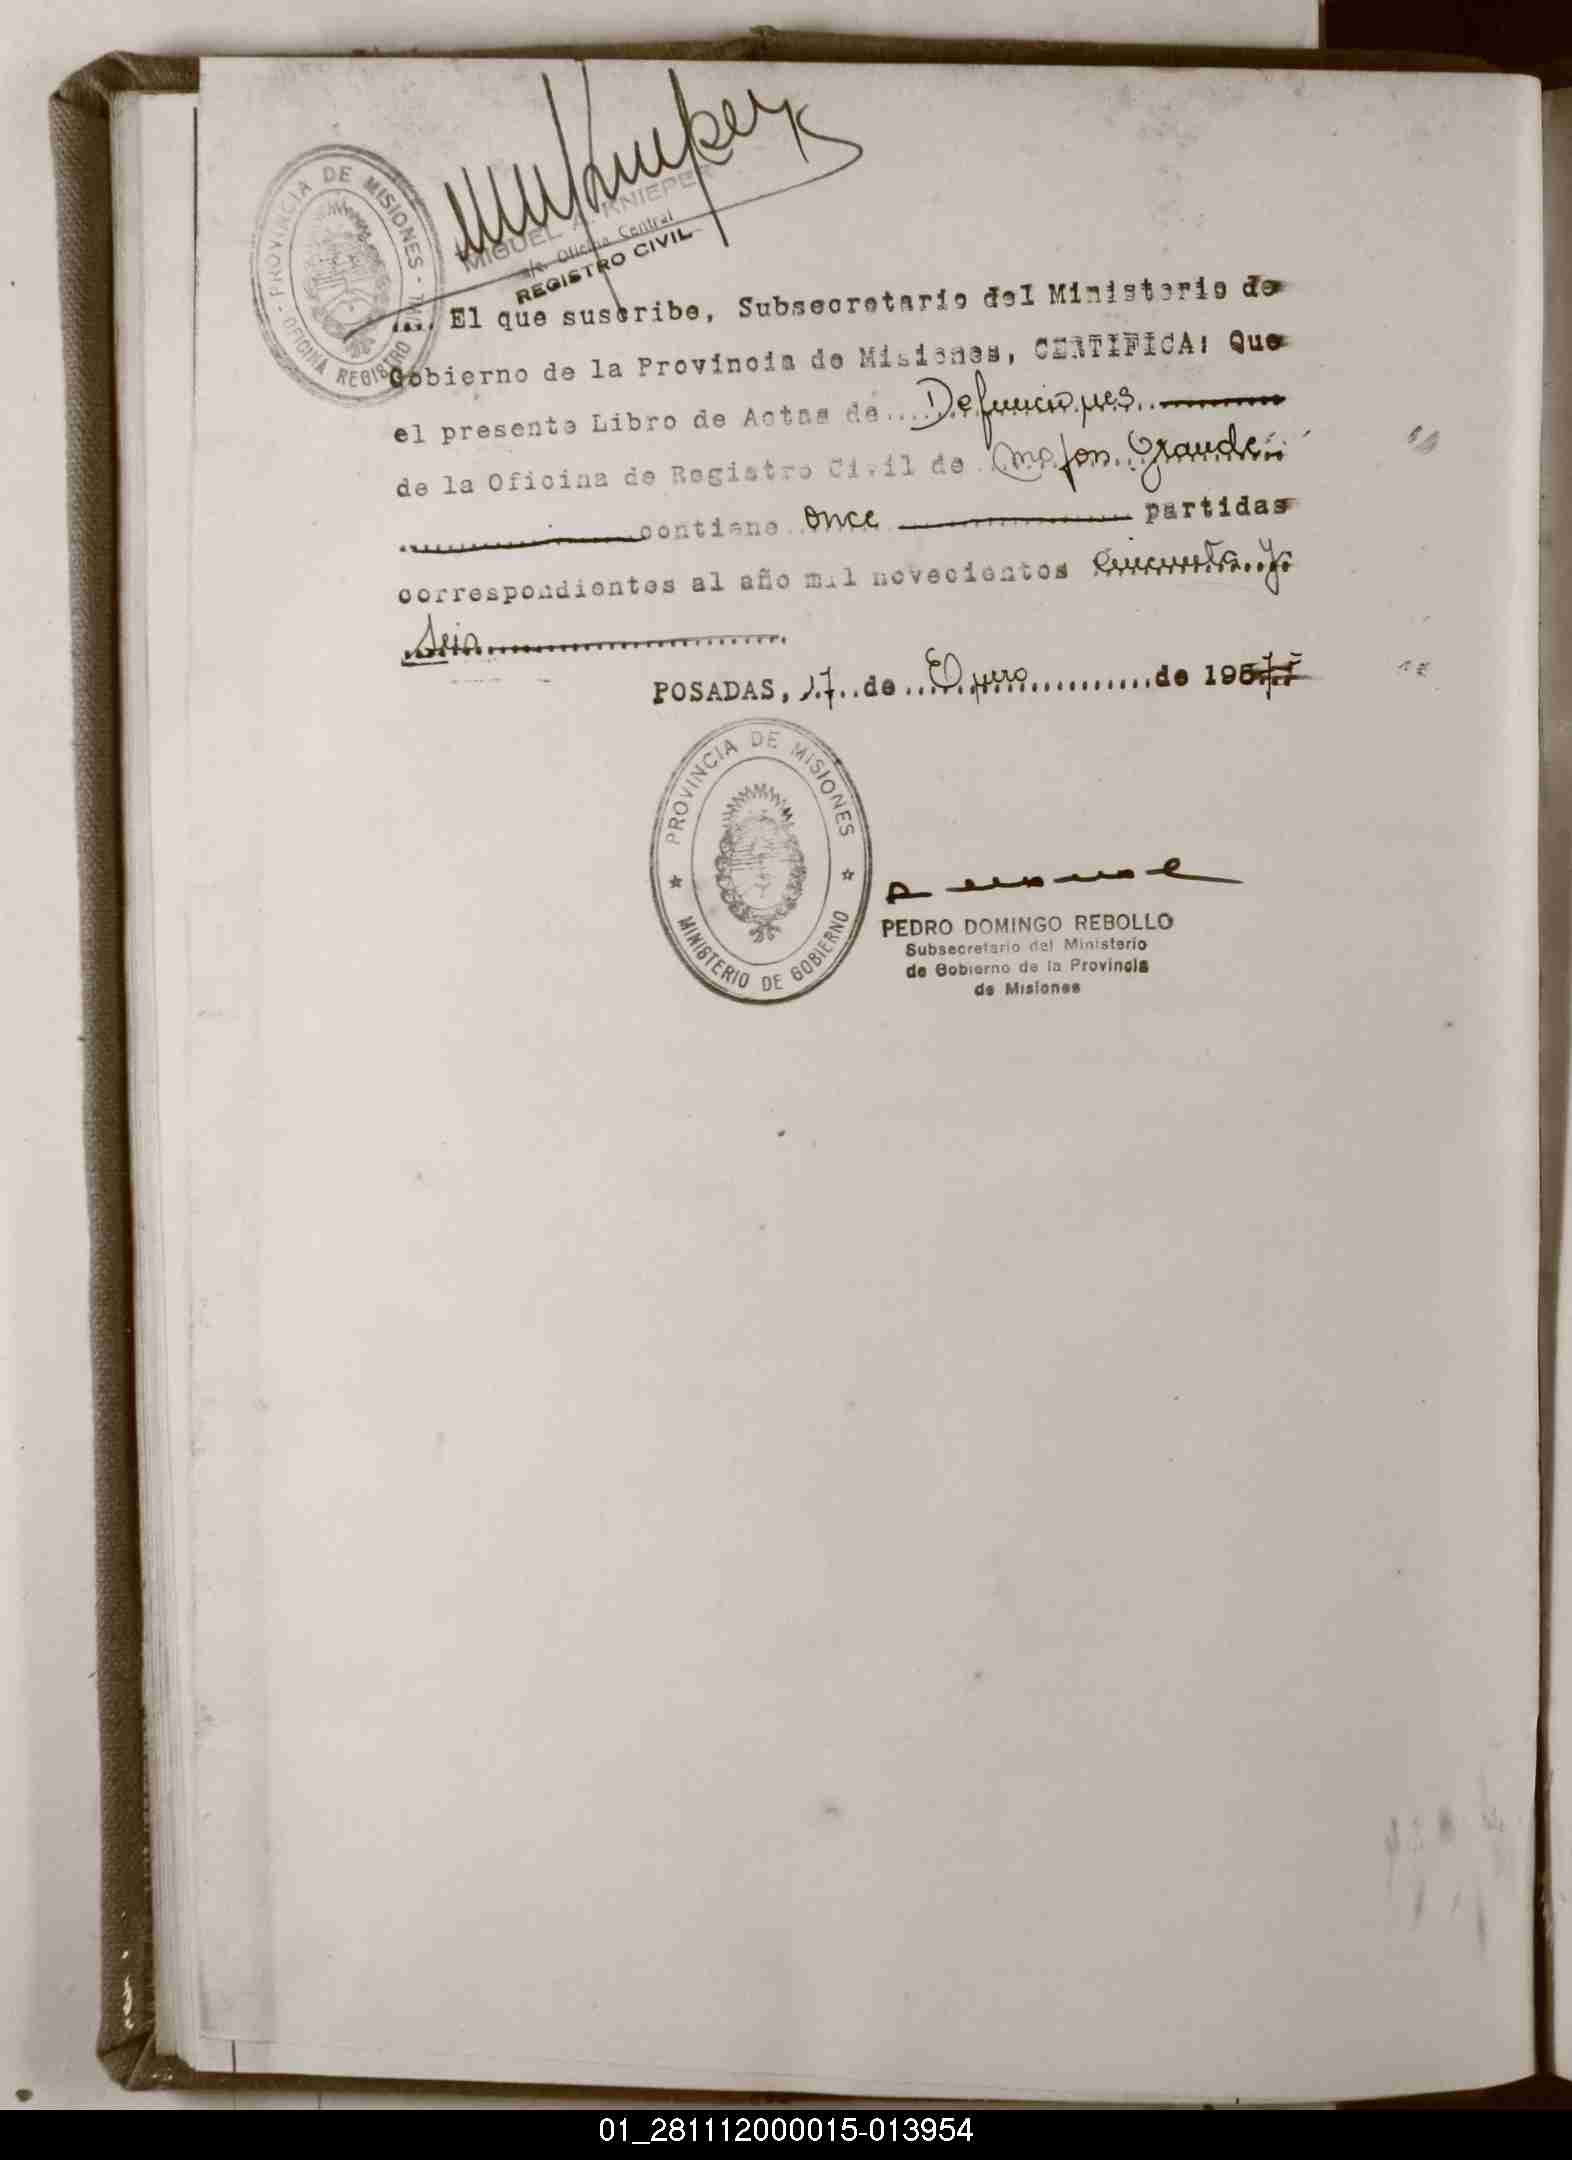 PROVINCIA DE MISIONES - OFICINA REGISTRO CIVIL
MIGUEL A. KNIEPER
a/c. Oficina Central
REGISTRO CIVIL
El que suscribe, Subsecretario del Ministerio de
Gobierno de la Provincia de Misiones, CERTIFICA: Que
el presente Libro de Actas de.. Defunciones
de la Oficina de Registro Civil de Mojon Grande
contiene once partidas
correspondientes al año mil novecientos Cincuenta y
Seis
POSADAS, 17 de Enero de 1957
PROVINCIA DE MISIONES
MINISTERIO DE GOBIERNO
PEDRO DOMINGO REBOLLO
Subsecretario del Ministerio
de Gobierno de la Provincia
de Misiones
01_281112000015-013954